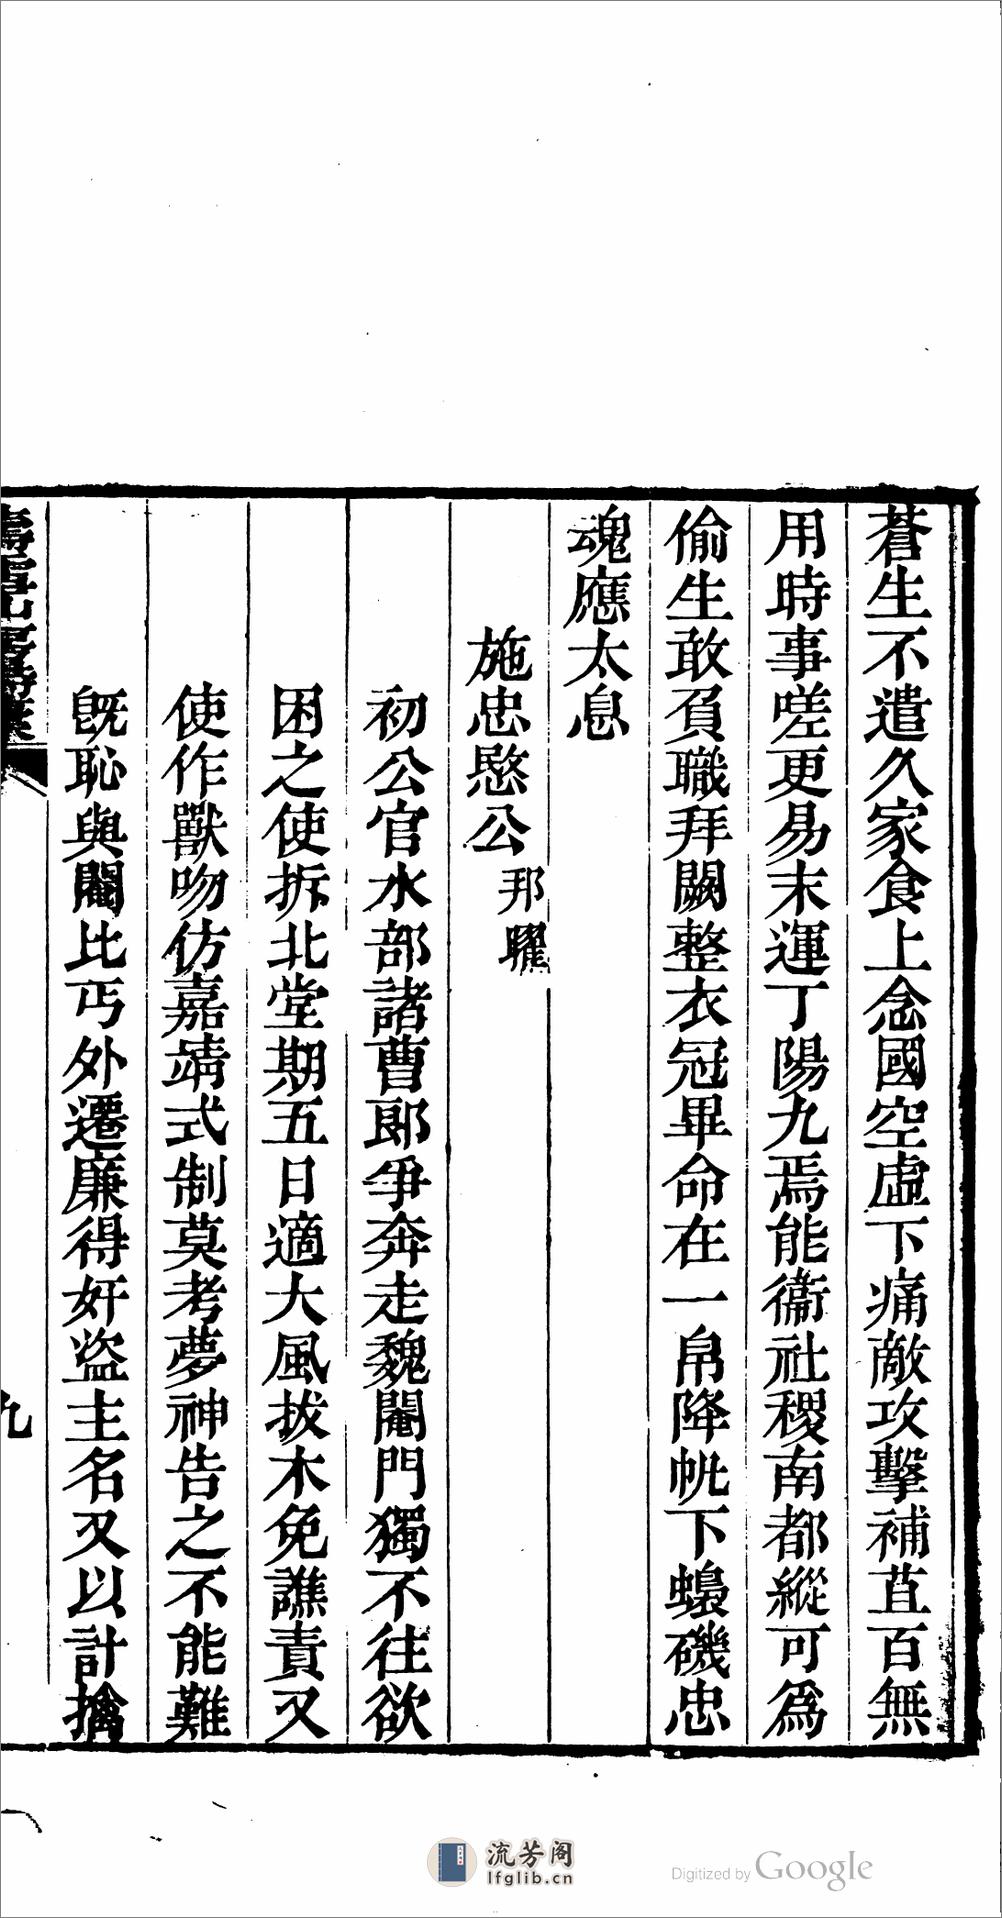 蒼生不遣久家食上念國空虛下痛敵攻擊補苴百無
用時事嗟更易末運丁陽九焉能衞社稷南都縱可爲
偷生敢負職拜闕整衣冠畢命在一帛降帆下蟂磯忠
魂應太息
施忠愍公邦曜
初公官水部諸曹郎爭奔走魏閹門獨不往欲
困之使拆北堂期五日適大風拔木免譙責又
使作獸吻仿嘉靖式制莫考夢神告之不能難
旣恥與閹比丐外遷廉得奸盜主名又以計擒
九
流芳阁
lfglib.cn
Digitized by Google